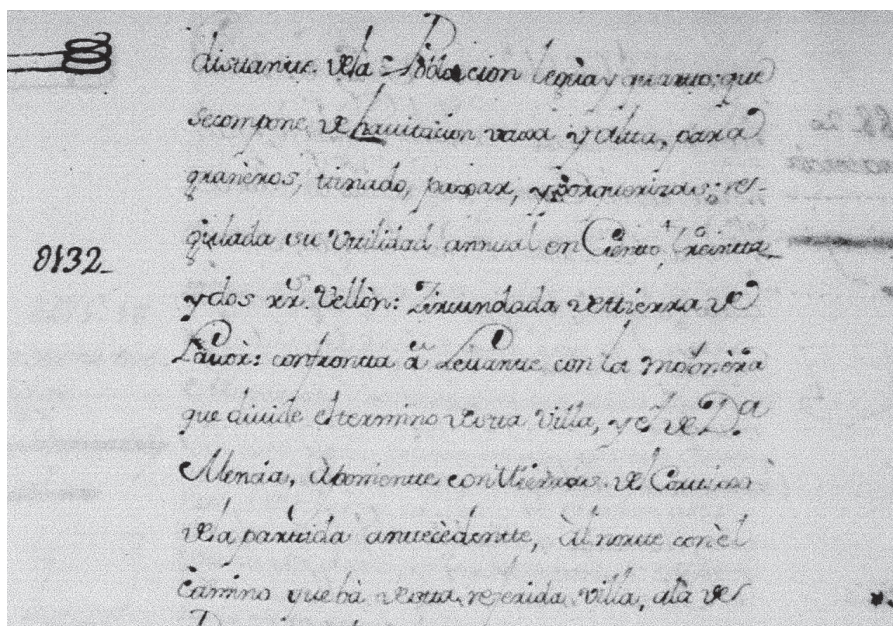 distante de la Poblacion legua y quarto, que
se compone de havitacion vaxa y alta, para
graneros, tinado, paxar, y porquerizas; re-
gulada su utilidad annual en Ciento, treinta
0132_
y dos rrs. Vellòn: Zircundada de ttierra de
Lavor: confronta â Levante con la mojonèra
que divide el termino de esta Villa, y el de Dª
Mencia, â poniente con ttierras del Cortixo
de la partida antecèdentte, al norte con el
Camino que bà de esta referida villa, a la de